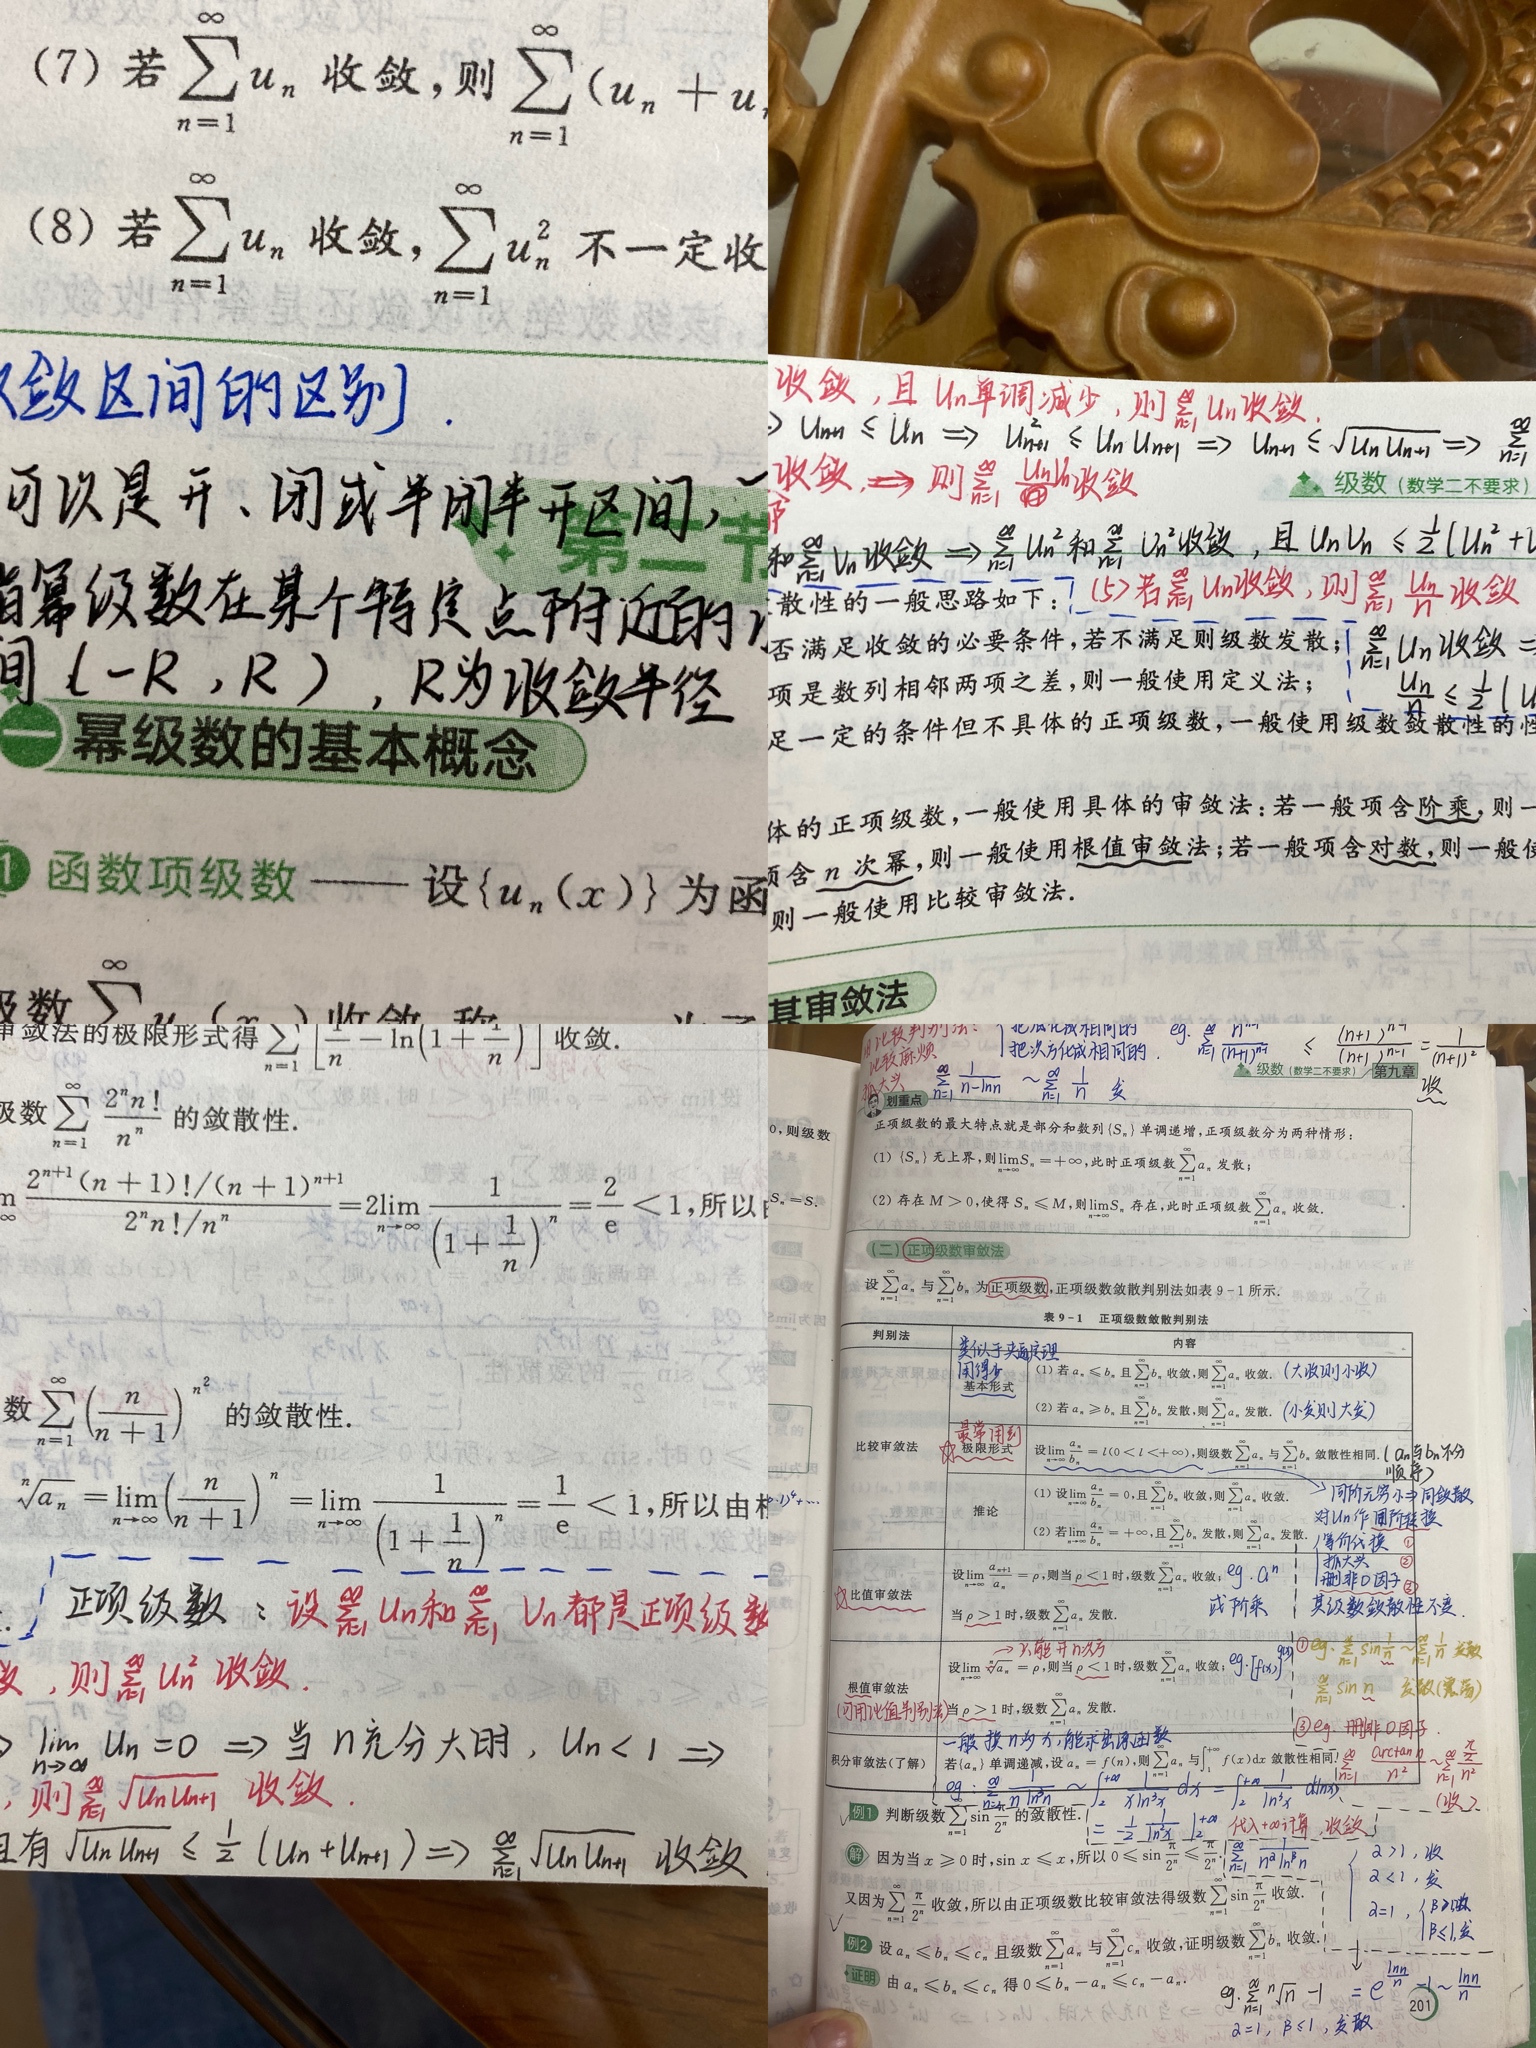 (7) 若 ∑_{n=1}^{∞} u_n 收敛,则 ∑_{n=1}^{∞} (u_n + u
(8) 若 ∑_{n=1}^{∞} u_n 收敛, ∑_{n=1}^{∞} u_n^2 不一定收
敛区间的区别.
可以是开、闭或半闭半开区间,
第二节
幂级数在某个特定点附近的
间 (-R, R) , R为收敛半径
一 幂级数的基本概念
1 函数项级数 —— 设{u_n(x)}为函
级数 ∑^{∞}
收敛, 且 Un单调减少, 则 ∑_{n=1}^{∞} Un收敛.
U_{n+1} ≤ U_n ⇒ U_{n+1}^2 ≤ U_n U_{n+1} ⇒ U_{n+1} ≤ √(U_n U_{n+1}) ⇒ ∑_{n=1}^{∞}
收敛 ⇒ 则 ∑_{n=1}^{∞}
级数 (数学二不要求)
和 ∑_{n=1}^{∞} V_n 收敛 ⇒ ∑_{n=1}^{∞} U_n^2 和 ∑_{n=1}^{∞} V_n^2 收敛, 且 U_n V_n ≤ 1/2 (U_n^2 +
散性的一般思路如下: (5) 若 ∑_{n=1}^{∞} Un收敛, 则 ∑_{n=1}^{∞} Un/n 收敛
否满足收敛的必要条件,若不满足则级数发散; ∑_{n=1}^{∞} Un收敛
项是数列相邻两项之差,则一般使用定义法; Un/n ≤ 1/2 (
足一定的条件但不具体的正项级数,一般使用级数敛散性的性
体的正项级数,一般使用具体的审敛法:若一般项含阶乘,则一
项含 n 次幂,则一般使用根值审敛法;若一般项含对数,则一般使
则一般使用比较审敛法.
审敛法
审敛法的极限形式得 ∑_{n=1}^{∞} [1/n - ln(1 + 1/n)] 收敛.
级数 ∑_{n=1}^{∞} 2^n n!/n^n 的敛散性.
(2^{n+1}(n+1)!/(n+1)^{n+1})/(2^n n!/n^n) = 2 lim_{n→∞} 1/(1 + 1/n)^n = 2/e < 1,所以
数 ∑_{n=1}^{∞} (n/(n+1))^{n^2} 的敛散性.
ⁿ√a_n = lim_{n→∞} (n/(n+1))^n = lim_{n→∞} 1/(1 + 1/n)^n = 1/e < 1,所以由根
正项级数: 设 ∑_{n=1}^{∞} Un和 ∑_{n=1}^{∞} Vn都是正项级数
, 则 ∑_{n=1}^{∞} Un^2 收敛.
lim_{n→∞} Un = 0 ⇒ 当 n充分大时, Un < 1 ⇒
, 则 ∑_{n=1}^{∞} √(Un Un+1) 收敛.
且有 √(Un Un+1) ≤ 1/2 (Un + Un+1) ⇒ ∑_{n=1}^{∞} √(Un Un+1) 收敛
0,则级数
S_n = S.
比较麻烦
抓大头
把次方化成相同的.
≤ (n+1)^{n-1}/(n+1)^{n+1} = 1/(n+1)^2
收
∑_{n=1}^{∞} 1/(n-lnn) ~ ∑_{n=1}^{∞} 1/n 发
级数 (数学二不要求) 第九章
划重点
正项级数的最大特点就是部分和数列{S_n}单调递增,正项级数分为两种情形:
(1) {S_n}无上界,则 lim_{n→∞} S_n = +∞,此时正项级数 ∑_{n=1}^{∞} a_n 发散;
(2) 存在 M > 0,使得 S_n ≤ M,则 lim_{n→∞} S_n 存在,此时正项级数 ∑_{n=1}^{∞} a_n 收敛.
(二) 正项级数审敛法
设 ∑_{n=1}^{∞} a_n 与 ∑_{n=1}^{∞} b_n 为正项级数,正项级数敛散判别法如表 9-1 所示.
表 9-1 正项级数敛散判别法
判别法 内容
比较审敛法
类似于夹逼定理
用得少
基本形式
(1) 若 a_n ≤ b_n 且 ∑_{n=1}^{∞} b_n 收敛,则 ∑_{n=1}^{∞} a_n 收敛. (大收则小收)
(2) 若 a_n ≥ b_n 且 ∑_{n=1}^{∞} b_n 发散,则 ∑_{n=1}^{∞} a_n 发散. (小发则大发)
最常用到
极限形式
设 lim_{n→∞} a_n/b_n = l(0 < l < +∞),则级数 ∑_{n=1}^{∞} a_n 与 ∑_{n=1}^{∞} b_n 敛散性相同. (an与bn不分
顺序)
推论
(1) 设 lim_{n→∞} a_n/b_n = 0,且 ∑_{n=1}^{∞} b_n 收敛,则 ∑_{n=1}^{∞} a_n 收敛.
(2) 若 lim_{n→∞} a_n/b_n = +∞,且 ∑_{n=1}^{∞} b_n 发散,则 ∑_{n=1}^{∞} a_n 发散.
同阶无穷小⇒同敛散
对Un作同阶转换
等价代换 ①
抓大头 ②
删非0因子 ③
其级数敛散性不变.
比值审敛法
设 lim_{n→∞} a_{n+1}/a_n = ρ,则当 ρ < 1 时,级数 ∑_{n=1}^{∞} a_n 收敛; eg. a^n
当 ρ > 1 时,级数 ∑_{n=1}^{∞} a_n 发散. 或阶乘
根值审敛法
(可用比值判别法)
设 lim_{n→∞} ⁿ√a_n = ρ,则当 ρ < 1 时,级数 ∑_{n=1}^{∞} a_n 收敛; eg. [f(x)]^{g(x)}
当 ρ > 1 时,级数 ∑_{n=1}^{∞} a_n 发散.
① eg. ∑_{n=1}^{∞} sin 1/n ~ ∑_{n=1}^{∞} 1/n 发散
∑_{n=1}^{∞} sin n 发散
③ eg. 删非0因子.
∑_{n=1}^{∞} arctan n/n^2 ~ ∑_{n=1}^{∞} (π/2)/n^2
(收)
一般换n为x,能求出原函数
积分审敛法(了解)
若{a_n}单调递减,设 a_n = f(n),则 ∑_{n=1}^{∞} a_n 与 ∫_1^{+∞} f(x)dx 敛散性相同.
1/(n ln^3 n) ~ ∫_2^{+∞} 1/(x ln^3 x) dx = ∫_2^{+∞} 1/(ln^3 x) d(lnx)
= -1/2 1/(ln^2 x) |_2^{+∞} 代入+∞计算, 收敛
例1 判断级数 ∑_{n=1}^{∞} sin π/2^n 的敛散性.
解 因为当 x ≥ 0 时, sin x ≤ x,所以 0 ≤ sin π/2^n ≤ π/2^n.
1/(n^α ln^β n)
α>1, 收
α<1, 发
α=1,
β≤1,发
又因为 ∑_{n=1}^{∞} π/2^n 收敛,所以由正项级数比较审敛法得级数 ∑_{n=1}^{∞} sin π/2^n 收敛.
例2 设 a_n ≤ b_n ≤ c_n 且级数 ∑_{n=1}^{∞} a_n 与 ∑_{n=1}^{∞} c_n 收敛,证明级数 ∑_{n=1}^{∞} b_n 收敛.
证明 由 a_n ≤ b_n ≤ c_n 得 0 ≤ b_n - a_n ≤ c_n - a_n.
eg. ∑_{n=1}^{∞} ⁿ√n - 1 = e^{lnn/n} - 1 ~ lnn/n
α=1, β≤1, 发散
201